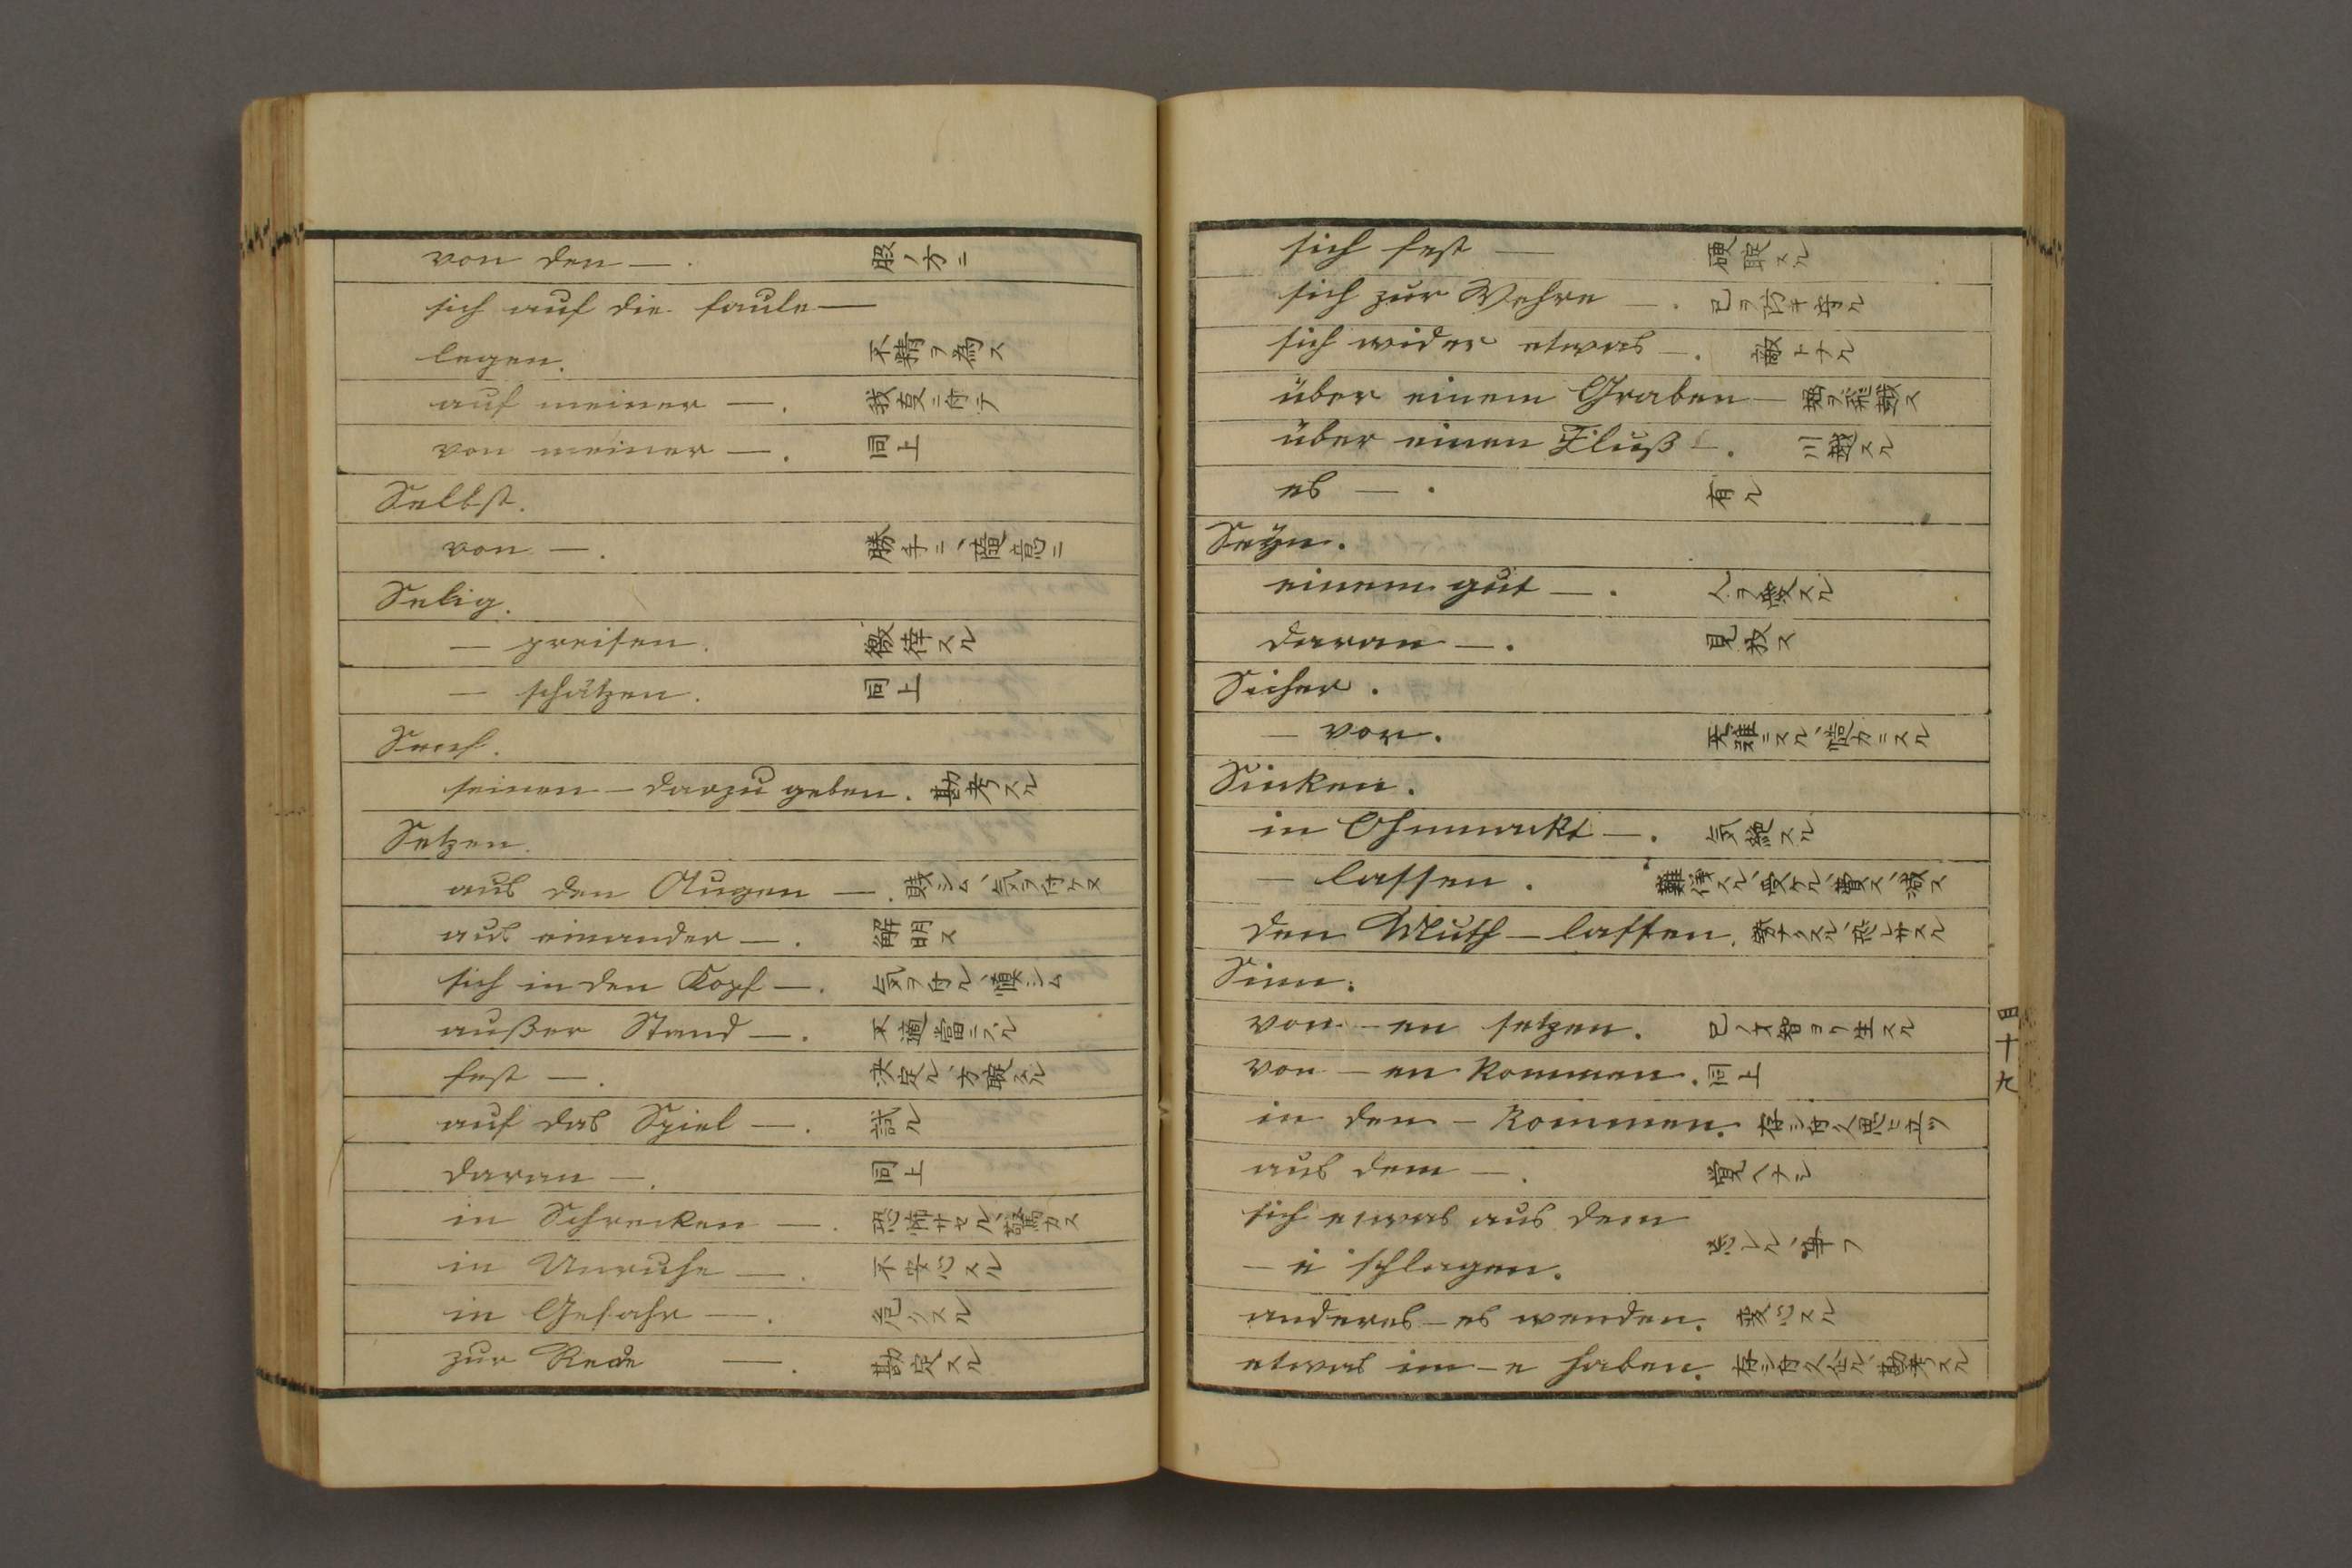 von den —.
ノ方ニ
sich auf die faule —
legen.
不精ヲ為ス
auf meiner —.
我ニ付テ
von meiner —.
同上
Selbst.
von —.
勝手ニ、随意ニ
Selig.
— preisen.
徼倖スル
— schätzen.
同上
Senf.
seinen — darzu geben.
勘考スル
Setzen.
aus den Augen —.
賤シム、気ヲ付ケヌ
aus einander —.
解明ス
sich in den Kopf —.
気ヲ付ル、慎シム
außer Stand —.
不適當ニスル
fest —.
決定ル、方
auf das Spiel —.
試ル
daran —.
同上
in Schrecken —.
恐怖サセル、驚カス
in Unruhe —.
不安心スル
in Gefahr —.
危クスル
zur Rede —.
勘定スル
sich fest —
硬スル
sich zur Wehre —.
己ヲ防キ守ル
sich wider etwas —.
敵トナル
über einem Graben —
堀ヲ飛越ス
über einen Fluß —.
川越スル
es —.
有ル
Seÿn.
einem gut —.
人ヲ愛スル
daran —.
見ス
Sicher.
— vor.
ニスル、慥カニスル
Sinken.
in Ohnmackt —.
気絶スル
— lassen.
難スル、受ケル、費ス、減ス
den Muth — lassen.
スル、恐レサスル
Sinn.
von — en setzen.
己ノ才智ヨリ生スル
von — en kommen.
同上
in den — kommen.
存シ付ク、思ヒ立ツ
aus dem —.
覚ヘナシ
sich etwas aus dem
— e schlagen.
忘レル、
anderes — es wenden.
変心スル
etwas im — e haben.
存シ付ク、企ル、勘考スル
四十九